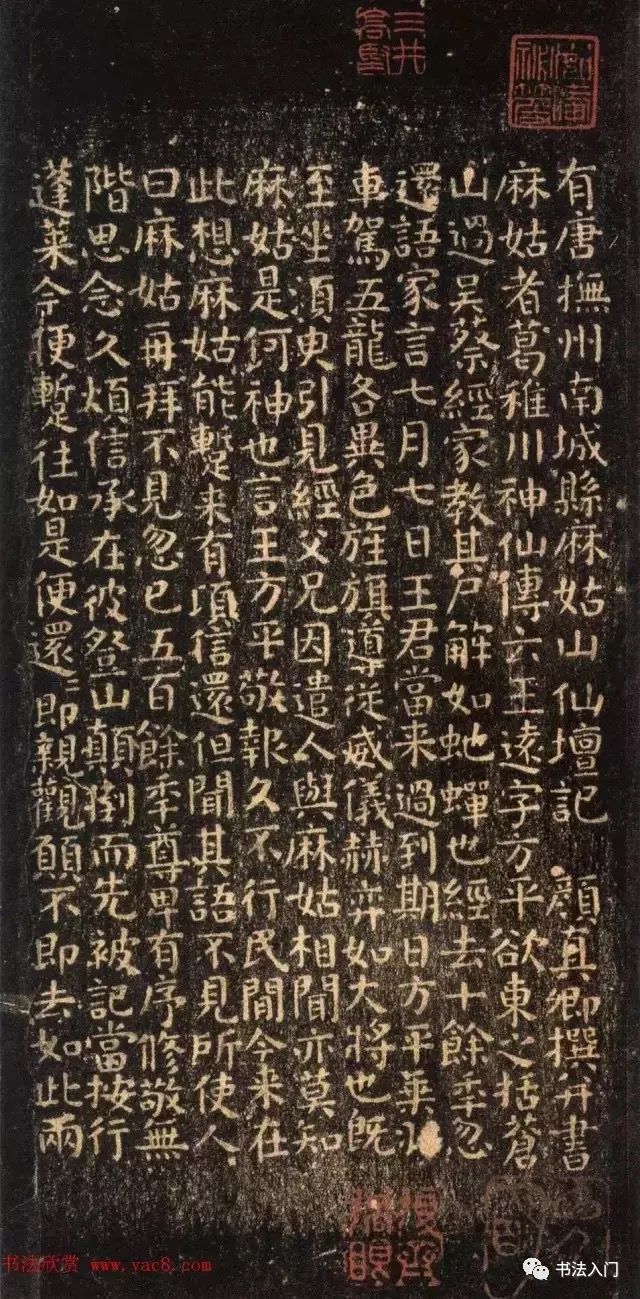 三井
高堅
有唐撫州南城縣麻姑山仙壇記 顏真卿撰并書
麻姑者葛稚川神仙傳云王遠字方平欲東之括蒼
山過吳蔡經家教其尸解如虵蟬也經去十餘季忽
還語家言七月七日王君當来過到期日方平乘
車駕五龍各異色旌旗導從威儀赫弈如大將也既
至坐須臾引見經父兄因遣人與麻姑相聞亦莫知
麻姑是何神也言王方平敬報久不行民間今来在
此想麻姑能蹔来有頃信還但聞其語不見所使人
曰麻姑再拜不見忽已五百餘季尊卑有序修敬無
階思念久煩信承在彼登山顛倒而先被記當按行
蓬莱今便蹔往如是便還〻即親觀願不即去如此兩
书法欣赏 www.yac8.com
书法入门